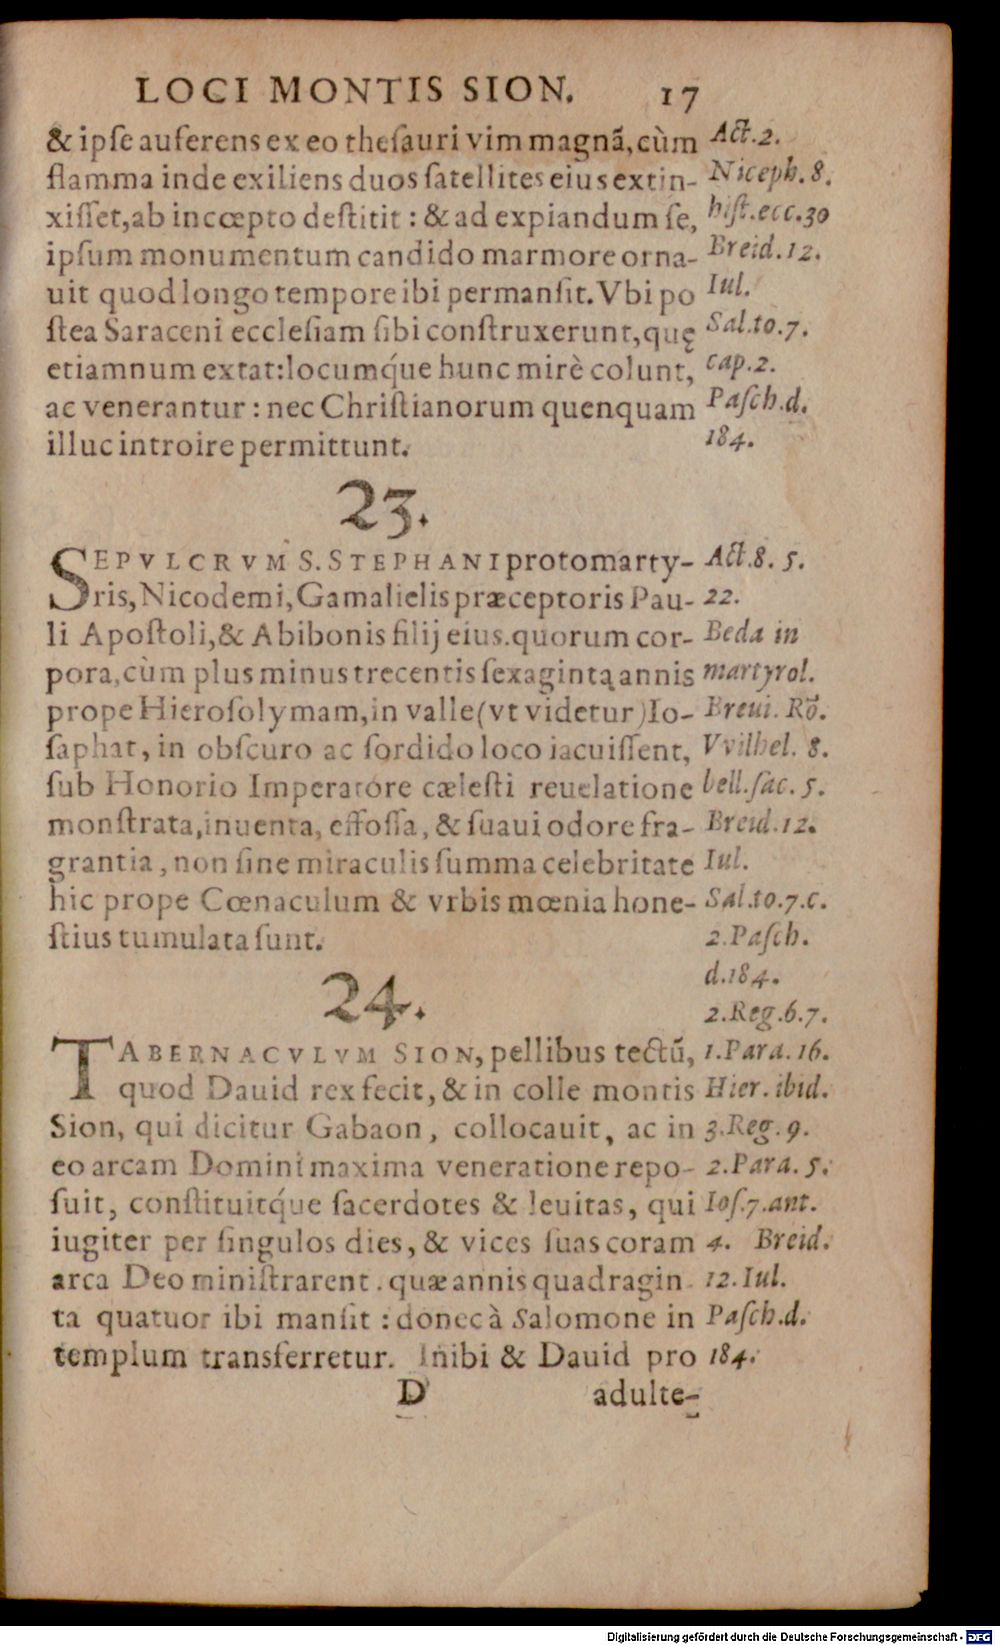 LOCI MONTIS SION. 17
& ipſe auferens ex eo theſauri vim magnã, cùm
flamma inde exiliens duos ſatellites eius extin-
xiſſet, ab incœpto deſtitit : & ad expiandum ſe,
ipſum monumentum candido marmore orna-
uit quod longo tempore ibi permanſit. Vbi po
ſtea Saraceni eccleſiam ſibi conſtruxerunt, quę
etiamnum extat: locumq́ue hunc mirè colunt,
ac venerantur : nec Chriſtianorum quenquam
illuc introire permittunt.
Act. 2.
Niceph. 8.
hiſt. ecc. 30
Breid. 12.
Iul.
Sal. to. 7.
cap. 2.
Paſch. d.
184.
23.
SEPVLCRVM S. STEPHANI protomarty-
ris, Nicodemi, Gamalielis præceptoris Pau-
li Apoſtoli, & Abibonis filij eius. quorum cor-
pora, cùm plus minus trecentis ſexaginta annis
prope Hieroſolymam, in valle (vt videtur) Io-
ſaphat, in obſcuro ac ſordido loco iacuiſſent,
ſub Honorio Imperatore cæleſti reuelatione
monſtrata, inuenta, effoſſa, & ſuaui odore fra-
grantia, non ſine miraculis ſumma celebritate
hic prope Cœnaculum & vrbis mœnia hone-
ſtius tumulata ſunt.
Act. 8. 5.
22.
Beda in
martyrol.
Breui. Rõ.
VVilhel. 8.
bell. ſac. 5.
Breid. 12.
Iul.
Sal. to. 7. c.
2. Paſch.
d. 184.
24.
TABERNACVLVM SION, pellibus tectũ,
quod Dauid rex fecit, & in colle montis
Sion, qui dicitur Gabaon, collocauit, ac in
eo arcam Domini maxima veneratione repo-
ſuit, conſtituitq́ue ſacerdotes & leuitas, qui
iugiter per ſingulos dies, & vices ſuas coram
arca Deo miniſtrarent. quæ annis quadragin-
ta quatuor ibi manſit : donec à Salomone in
templum transferretur. Inibi & Dauid pro
2. Reg. 6. 7.
1. Para. 16.
Hier. ibid.
3. Reg. 9.
2. Para. 5.
Ioſ. 7. ant.
4. Breid.
12. Iul.
Paſch. d.
184.
D adulte-
Digitalisierung gefördert durch die Deutsche Forschungsgemeinschaft - DFG